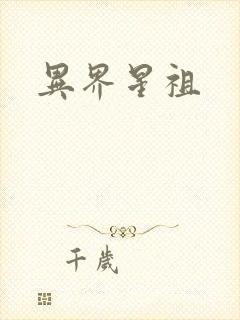 異界星祖
千歲